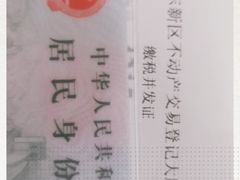 东新区不动产交易登记大
缴税并发证
中华人民共和
居民身份